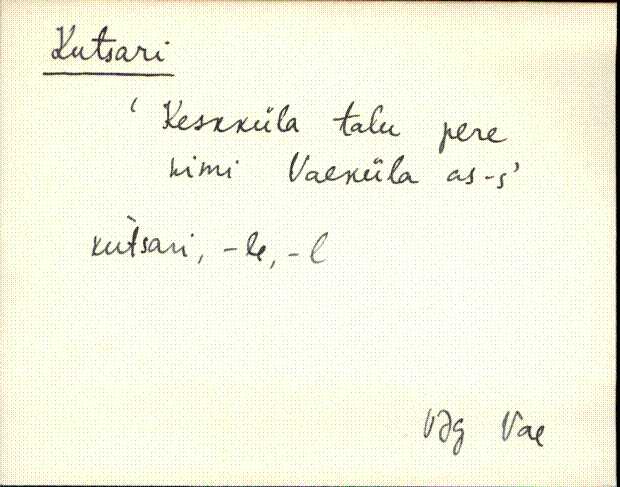 Kutsari
‘Keskküla talu pere
nimi Vaeküla as-s’
kut̀sari, -le, -l
VJg Vae